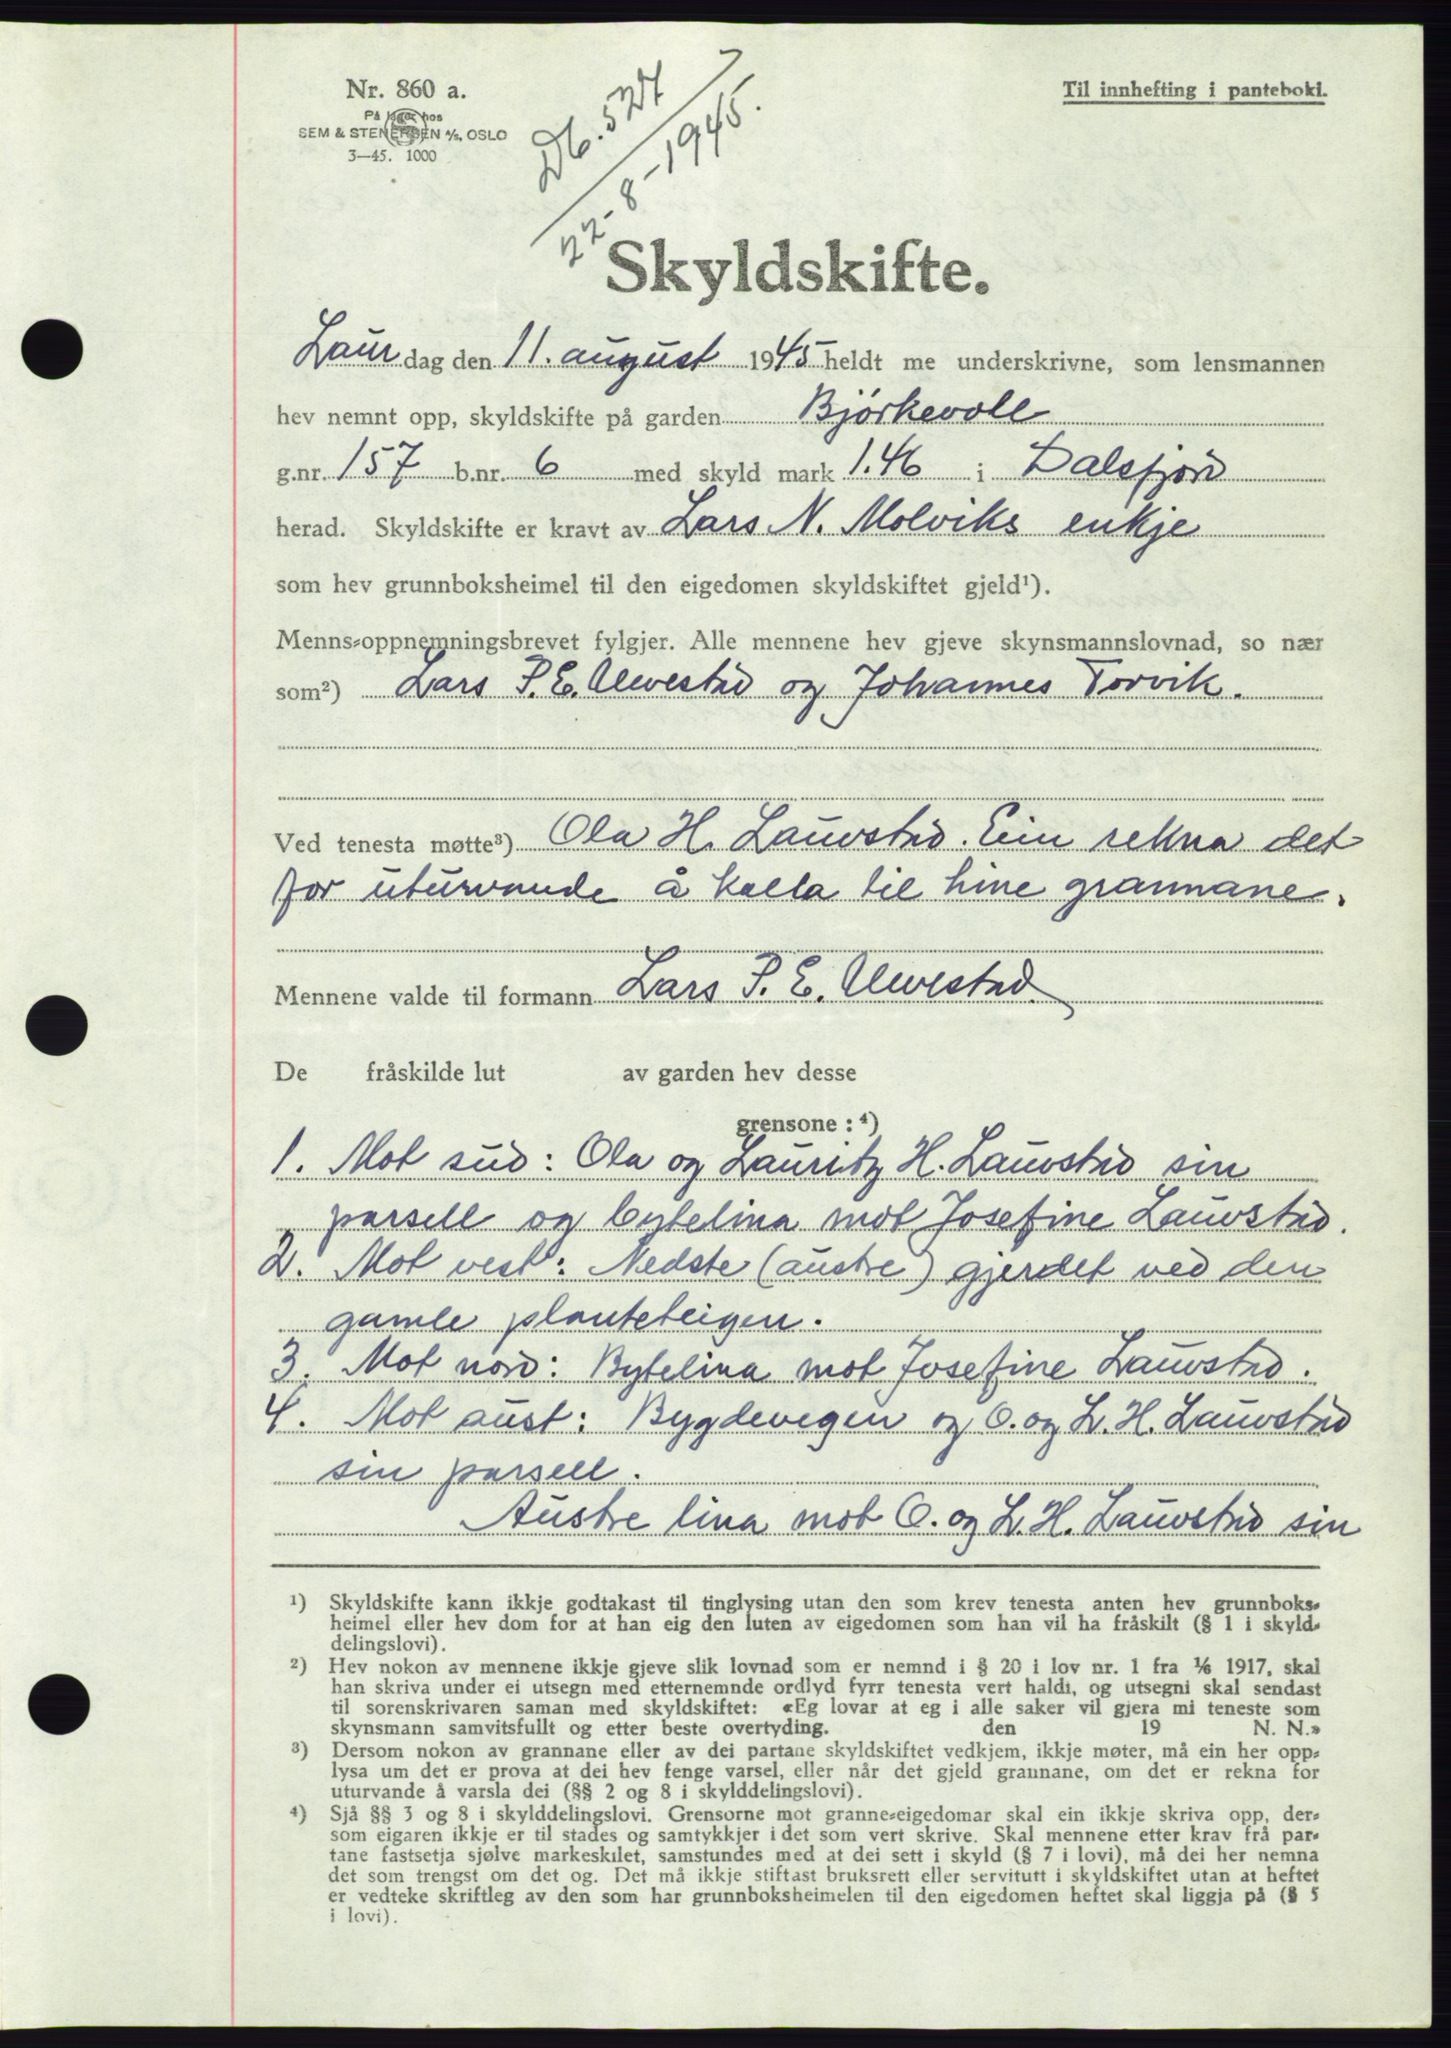 Nr. 860 a.
På lager hos
SEM & STENERSEN A/S, OSLO
3—45. 1000
22-8-1945.
Til innhefting i panteboki.
Skyldskifte.
Laurdag den 11. august 1945 heldt me underskrivne, som lensmannen
hev nemnt opp, skyldskifte på garden Bjørkevoll
g.nr. 157 b.nr. 6 med skyld mark 1.46 i Dalsfjord
herad. Skyldskifte er kravt av Lars N. Molviks enkje
som hev grunnboksheimel til den eigedomen skyldskiftet gjeld¹).
Menns-oppnemningsbrevet fylgjer. Alle mennene hev gjeve skynsmannslovnad, so nær
som²) Lars P. E. Ulvestad og Johannes Torvik.
Ved tenesta møtte³) Ola H. Lauvstad. Ein rekna det
for uturvande å kalla til hine grannane.
Mennene valde til formann Lars P. E. Ulvestad
De fråskilde lut av garden hev desse
grensone : ⁴)
1. Mot sud: Ola og Lauritz H. Lauvstad sin
parsell og bytelina mot Josefine Lauvstad.
2. Mot vest: Nedste (austre) gjerdet ved den
gamle planteteigen.
3. Mot nord: Bytelina mot Josefine Lauvstad.
4. Mot aust: Bygdevegen og O. og L. H. Lauvstad
sin parsell.
Austre lina mot O. og L. H. Lauvstad sin
¹) Skyldskifte kann ikkje godtakast til tinglysing utan den som krev tenesta anten hev grunnboks-
heimel eller hev dom for at han eig den luten av eigedomen som han vil ha fråskilt (§ 1 i skyld-
delingslovi).
²) Hev nokon av mennene ikkje gjeve slik lovnad som er nemnd i § 20 i lov nr. 1 fra 1/6 1917, skal
han skriva under ei utsegn med etternemnde ordlyd fyrr tenesta vert haldi, og utsegni skal sendast
til sorenskrivaren saman med skyldskiftet: «Eg lovar at eg i alle saker vil gjera mi teneste som
skynsmann samvitsfullt og etter beste overtyding. den 19 N. N.»
³) Dersom nokon av grannane eller av dei partane skyldskiftet vedkjem, ikkje møter, må ein her opp-
lysa um det er prova at dei hev fenge varsel, eller når det gjeld grannane, om det er rekna for
uturvande å varsla dei (§§ 2 og 8 i skylddelingslovi).
⁴) Sjå §§ 3 og 8 i skylddelingslovi. Grensorne mot granne-eigedomar skal ein ikkje skriva opp, der-
som eigaren ikkje er til stades og samtykkjer i det som vert skrive. Skal mennene etter krav frå par-
tane fastsetja sjølve markeskilet, samstundes med at dei sett i skyld (§ 7 i lovi), må dei her nemna
det som trengst om det og. Det må ikkje stiftast bruksrett eller servitutt i skyldskiftet utan at heftet
er vedteke skriftleg av den som har grunnboksheimelen til den eigedomen heftet skal liggja på (§ 5
i lovi).